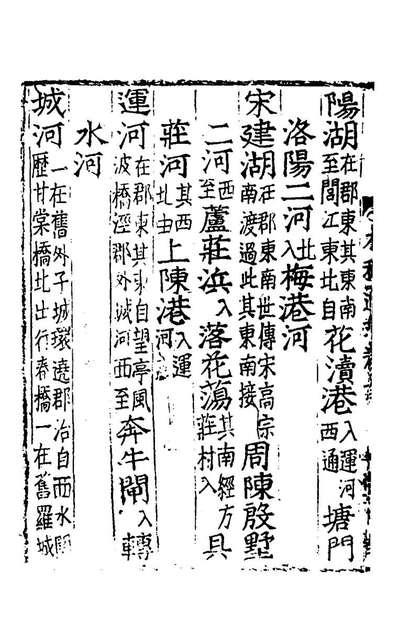 陽湖在郡東其東南至閶江東北自花瀆港入運河西通塘門
洛陽二河北入梅港河
宋建湖在郡東南世傳宋高宗南渡過此其東南接周陳殷墅
二河西至蘆莊浜入落花蕩其南經方莊村入具
莊河其西北由上陳港入運河
運河在郡東其東自望亭風波橋涇郡外城河西至奔牛閘入轉
水河
城河一在舊外子城環遶郡治自西水關歷甘棠橋北出行春橋一在舊羅城